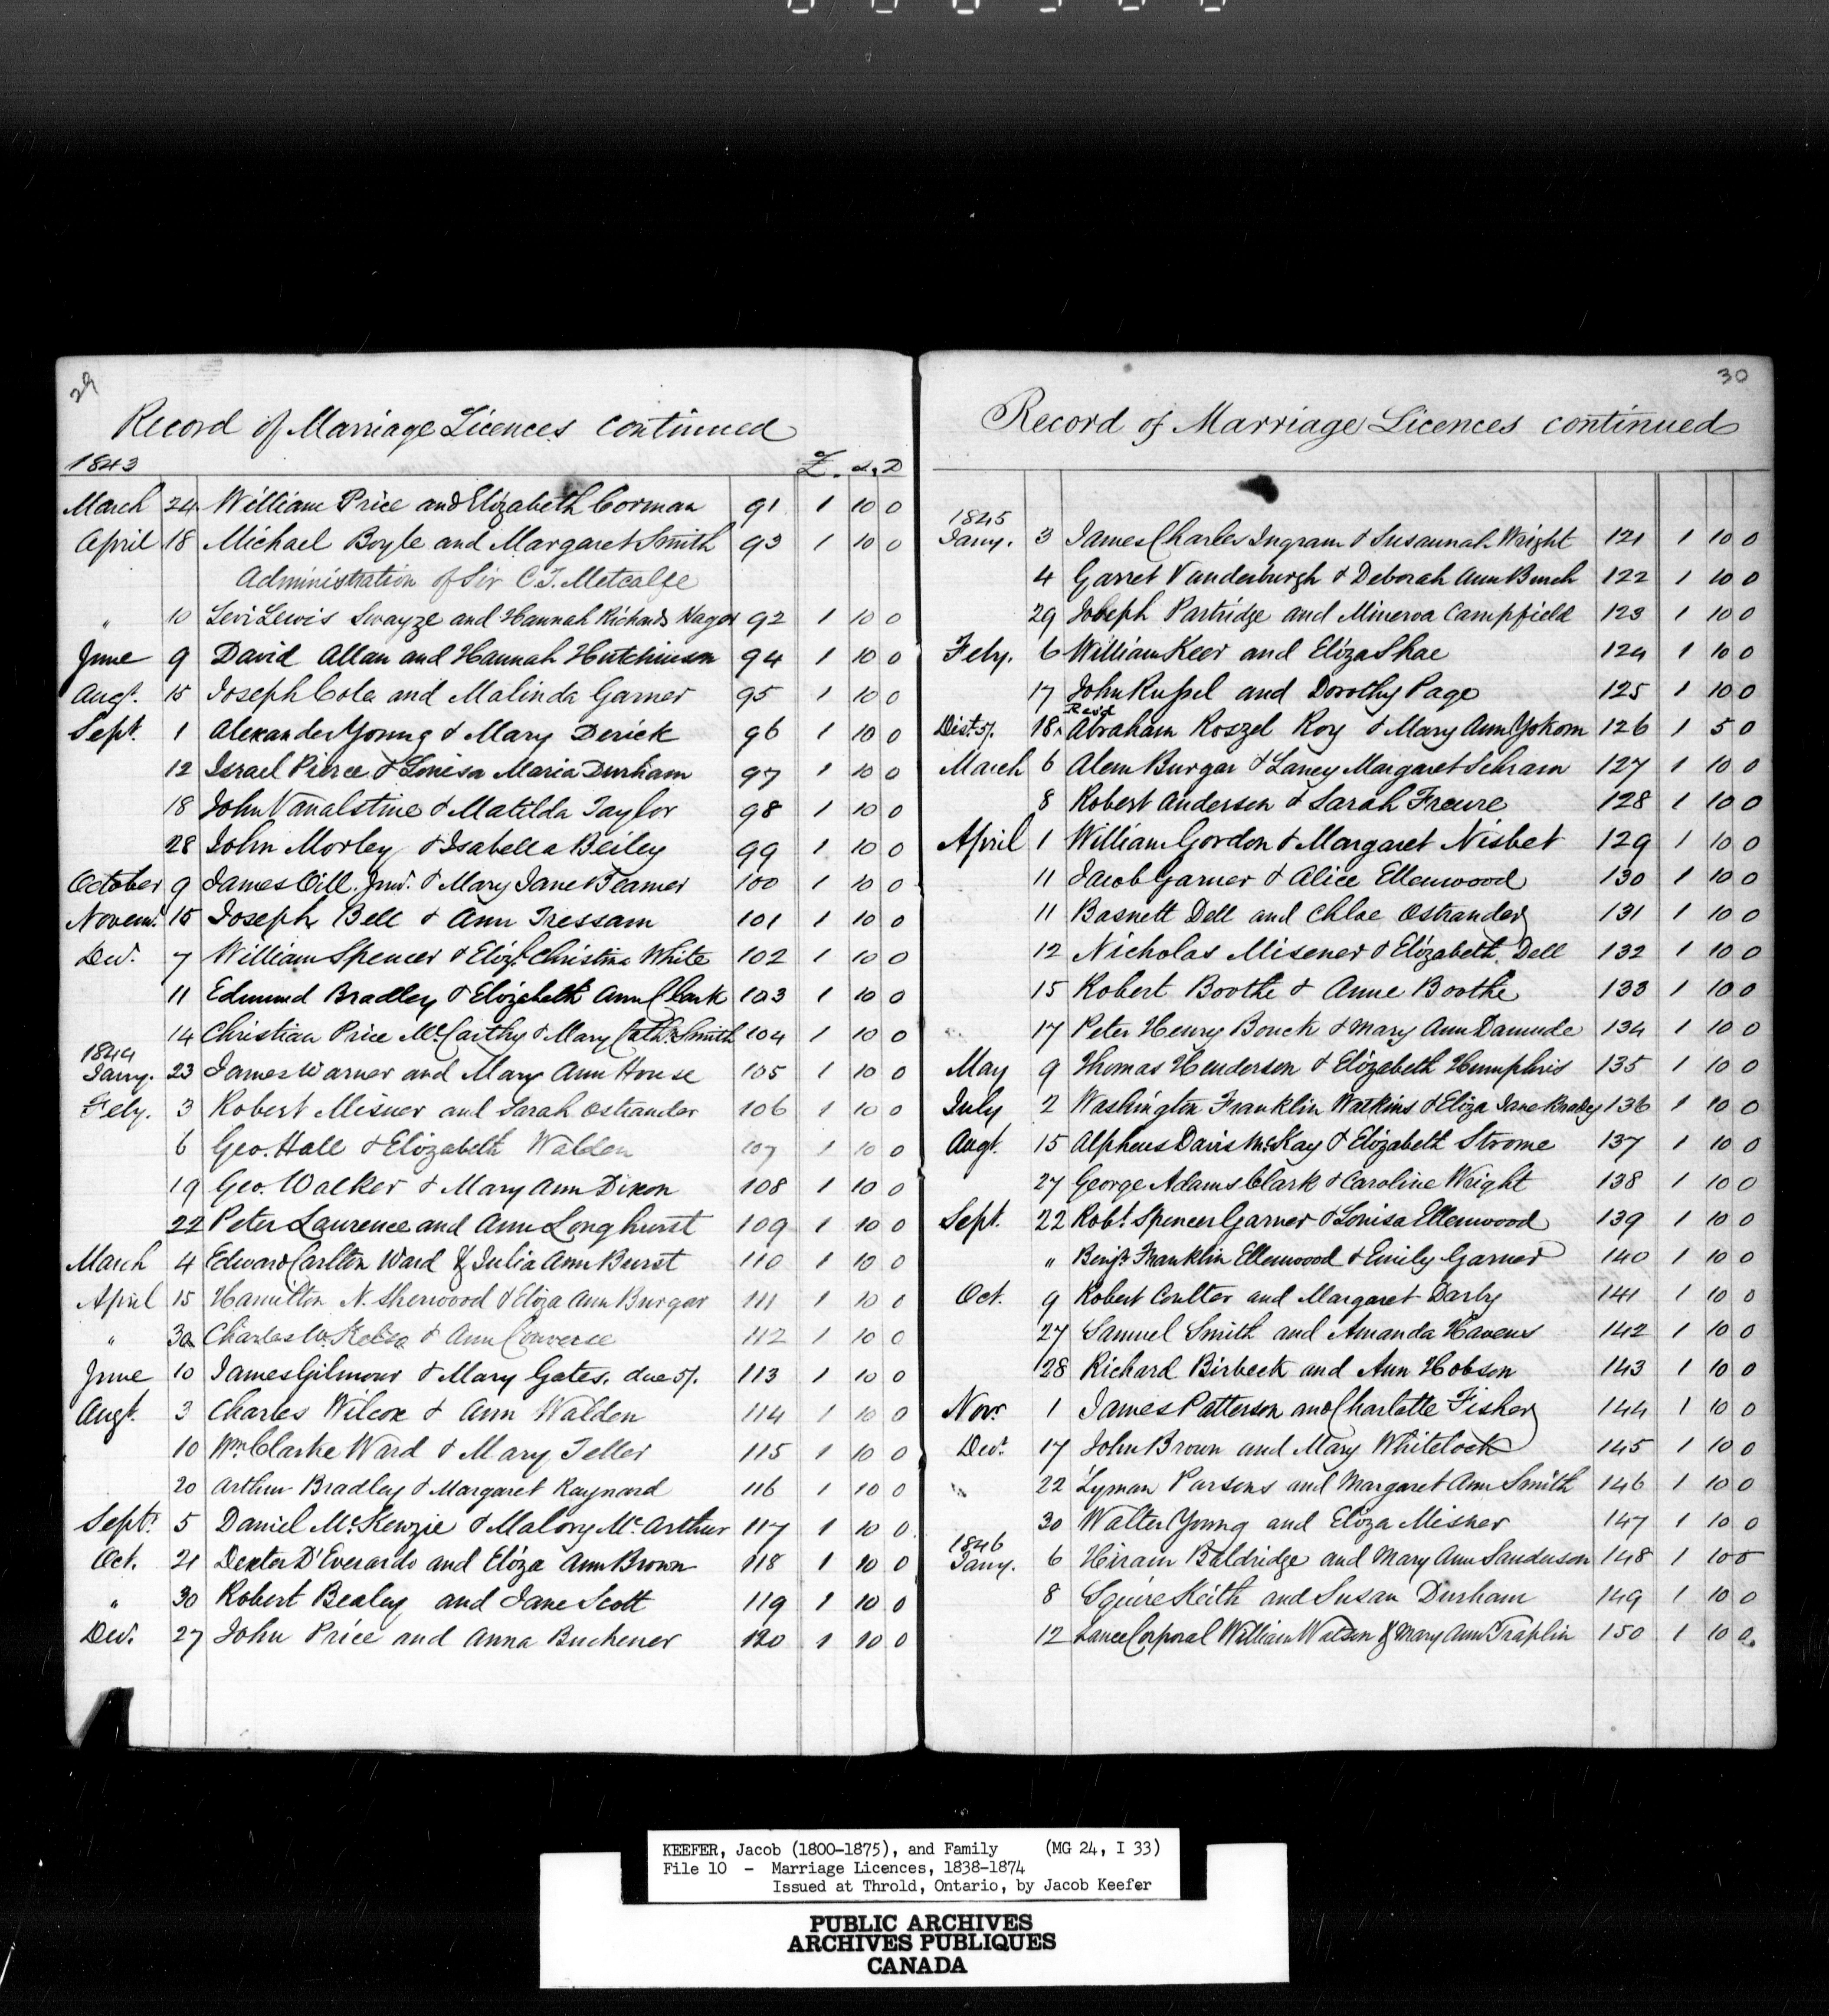 29
Record of Marriage Licences continued
1843 £. s. D
March 24 William Price and Elizabeth Corman 91 1 10 0
April 18 Michael Boyle and Margaret Smith 93 1 10 0
Administration of Sir C. T. Metcalfe
" 10 Levi Lewis Swayze and Hannah Richards Hagar 92 1 10 0
June 9 David Allan and Hannah Hutchinson 94 1 10 0
Augt. 15 Joseph Cole and Malinda Garner 95 1 10 0
Sept. 1 Alexander Young & Mary Derick 96 1 10 0
12 Israel Pierce & Louisa Maria Durham 97 1 10 0
18 John Vanalstine & Matilda Taylor 98 1 10 0
28 John Morley & Isabella Beiley 99 1 10 0
October 9 James Oill. Junr. & Mary Jane Beamer 100 1 10 0
Novemr. 15 Joseph Bell & Ann Tressam 101 1 10 0
Decr. 7 William Spencer & Elizt. Christina White 102 1 10 0
11 Edmund Bradley & Elizabeth Ann Clark 103 1 10 0
14 Christian Price McCarthy & Mary Cathn. Smith 104 1 10 0
1844
Jany. 23 James Warner and Mary Ann House 105 1 10 0
Feby. 3 Robert Misner and Sarah Ostrander 106 1 10 0
6 Geo. Hall & Elizabeth Walden 107 1 10 0
19 Geo. Walker & Mary Ann Dixon 108 1 10 0
22 Peter Laurence and Ann Longhurst 109 1 10 0
March 4 Edward Carlton Ward & Julia Ann Burst 110 1 10 0
April 15 Hamilton N. Sherwood & Eliza Ann Burgar 111 1 10 0
" 30 Charles W. Kelso & Ann Converse 112 1 10 0
June 10 James Gilmour & Mary Gates. due 5/. 113 1 10 0
Augt. 3 Charles Wilcox & Ann Walden 114 1 10 0
10 Wm. Clarke Ward & Mary Teller 115 1 10 0
20 Arthur Bradley & Margaret Raynard 116 1 10 0
Septr. 5 Daniel McKenzie & Malory McArthur 117 1 10 0
Oct. 21 Dexter D'Everardo and Eliza Ann Brown 118 1 10 0
" 30 Robert Bealey and Jane Scott 119 1 10 0
Decr. 27 John Price and Anna Buchener 120 1 10 0
30
Record of Marriage Licences continued
1845
Jany. 3 James Charles Ingram & Susannah Wright 121 1 10 0
4 Garret Vanderburgh & Deborah Ann Burch 122 1 10 0
29 Joseph Partridge and Minerva Campfield 123 1 10 0
Feby. 6 William Keer and Eliza Shae 124 1 10 0
17 John Russel and Dorothy Page 125 1 10 0
Revd
Dist. 5/. 18 Abraham Roszel Roy & Mary Ann Yokom 126 1 5 0
March 6 Alem Burgar & Laney Margaret Schram 127 1 10 0
8 Robert Anderson & Sarah Freure 128 1 10 0
April 1 William Gordon & Margaret Nisbet 129 1 10 0
11 Jacob Garner & Alice Ellenwood 130 1 10 0
11 Basnett Dell and Chloe Ostrander 131 1 10 0
12 Nicholas Misener & Elizabeth Dell 132 1 10 0
15 Robert Boothe & Anne Boothe 133 1 10 0
17 Peter Henry Bouck & Mary Ann Damude 134 1 10 0
May 9 Thomas Henderson & Elizabeth Humphris 135 1 10 0
July 2 Washington Franklin Watkins & Eliza Jane Bradley 136 1 10 0
Augt. 15 Alpheus Davis McKay & Elizabeth Strome 137 1 10 0
27 George Adams Clark & Caroline Wright 138 1 10 0
Sept. 22 Robt. Spencer Garner & Louisa Ellenwood 139 1 10 0
" Benjn. Franklin Ellenwood & Emily Garner 140 1 10 0
Oct. 9 Robert Coulter and Margaret Darby 141 1 10 0
27 Samuel Smith and Amanda Havens 142 1 10 0
28 Richard Birbeck and Ann Hobson 143 1 10 0
Novr. 1 James Patterson and Charlotte Fisher 144 1 10 0
Decr. 17 John Brown and Mary Whitelock 145 1 10 0
22 Lyman Parsons and Margaret Ann Smith 146 1 10 0
30 Walter Young and Eliza Misner 147 1 10 0
1846
Jany. 6 Hiram Baldridge and Mary Ann Sanderson 148 1 10 0
8 Squire Keith and Susan Durham 149 1 10 0
12 Lance Corporal William Watson & Mary Ann Traplin 150 1 10 0.
KEEFER, Jacob (1800-1875), and Family (MG 24, I 33)
File 10 - Marriage Licences, 1838-1874
Issued at Throld, Ontario, by Jacob Keefer
PUBLIC ARCHIVES
ARCHIVES PUBLIQUES
CANADA